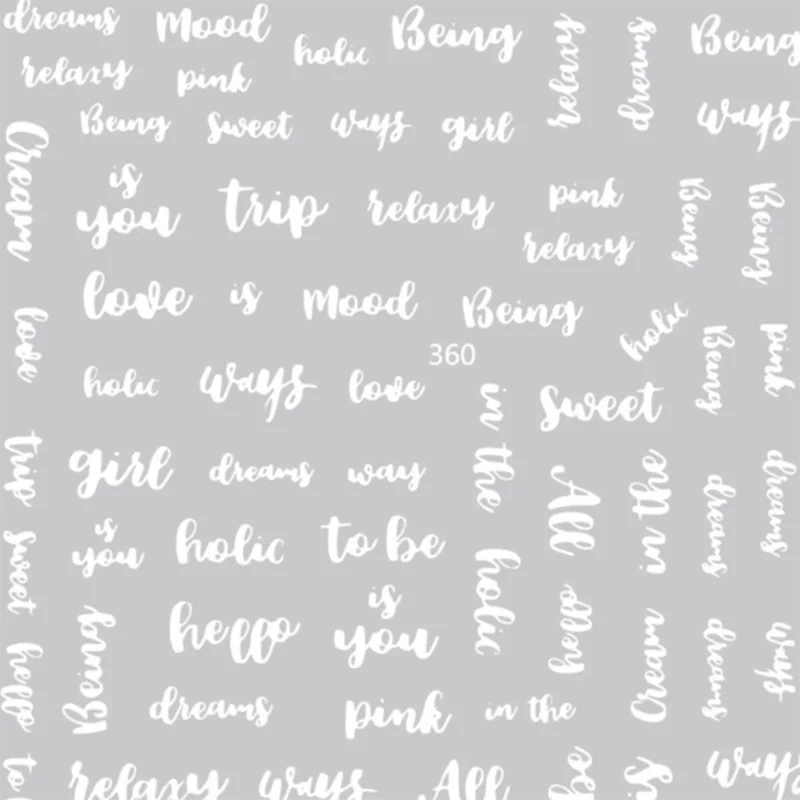 dreams Mood holic Being relaxy dreams Being
relaxy pink
Being sweet ways girl ways
Cream is you trip relaxy pink Being Being
relaxy
love love is Mood Being holic Being pink
360
holic ways love in the sweet
trip girl dreams way All in the dreams dreams
sweet is you holic to be holic hello
hello Being hello is you Cream dreams ways
dreams pink in the
to relaxy ways All be is ways